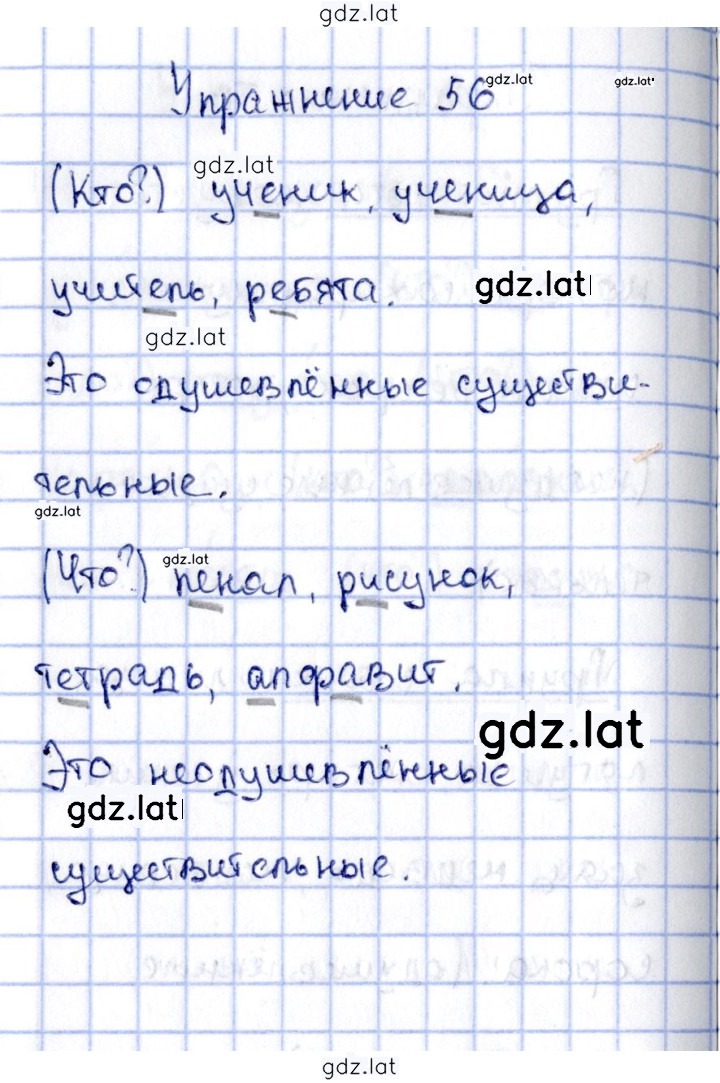 gdz.lat
Упражнение 56
gdz.lat
gdz.lat
gdz.lat
(Кто?) ученик, ученица,
учитель, ребята.
gdz.lat
gdz.lat
Это одушевлённые существи-
тельные.
gdz.lat
gdz.lat
(Что?) пенал, рисунок,
тетрадь, алфавит.
gdz.lat
Это неодушевлённые
gdz.lat
существительные.
gdz.lat